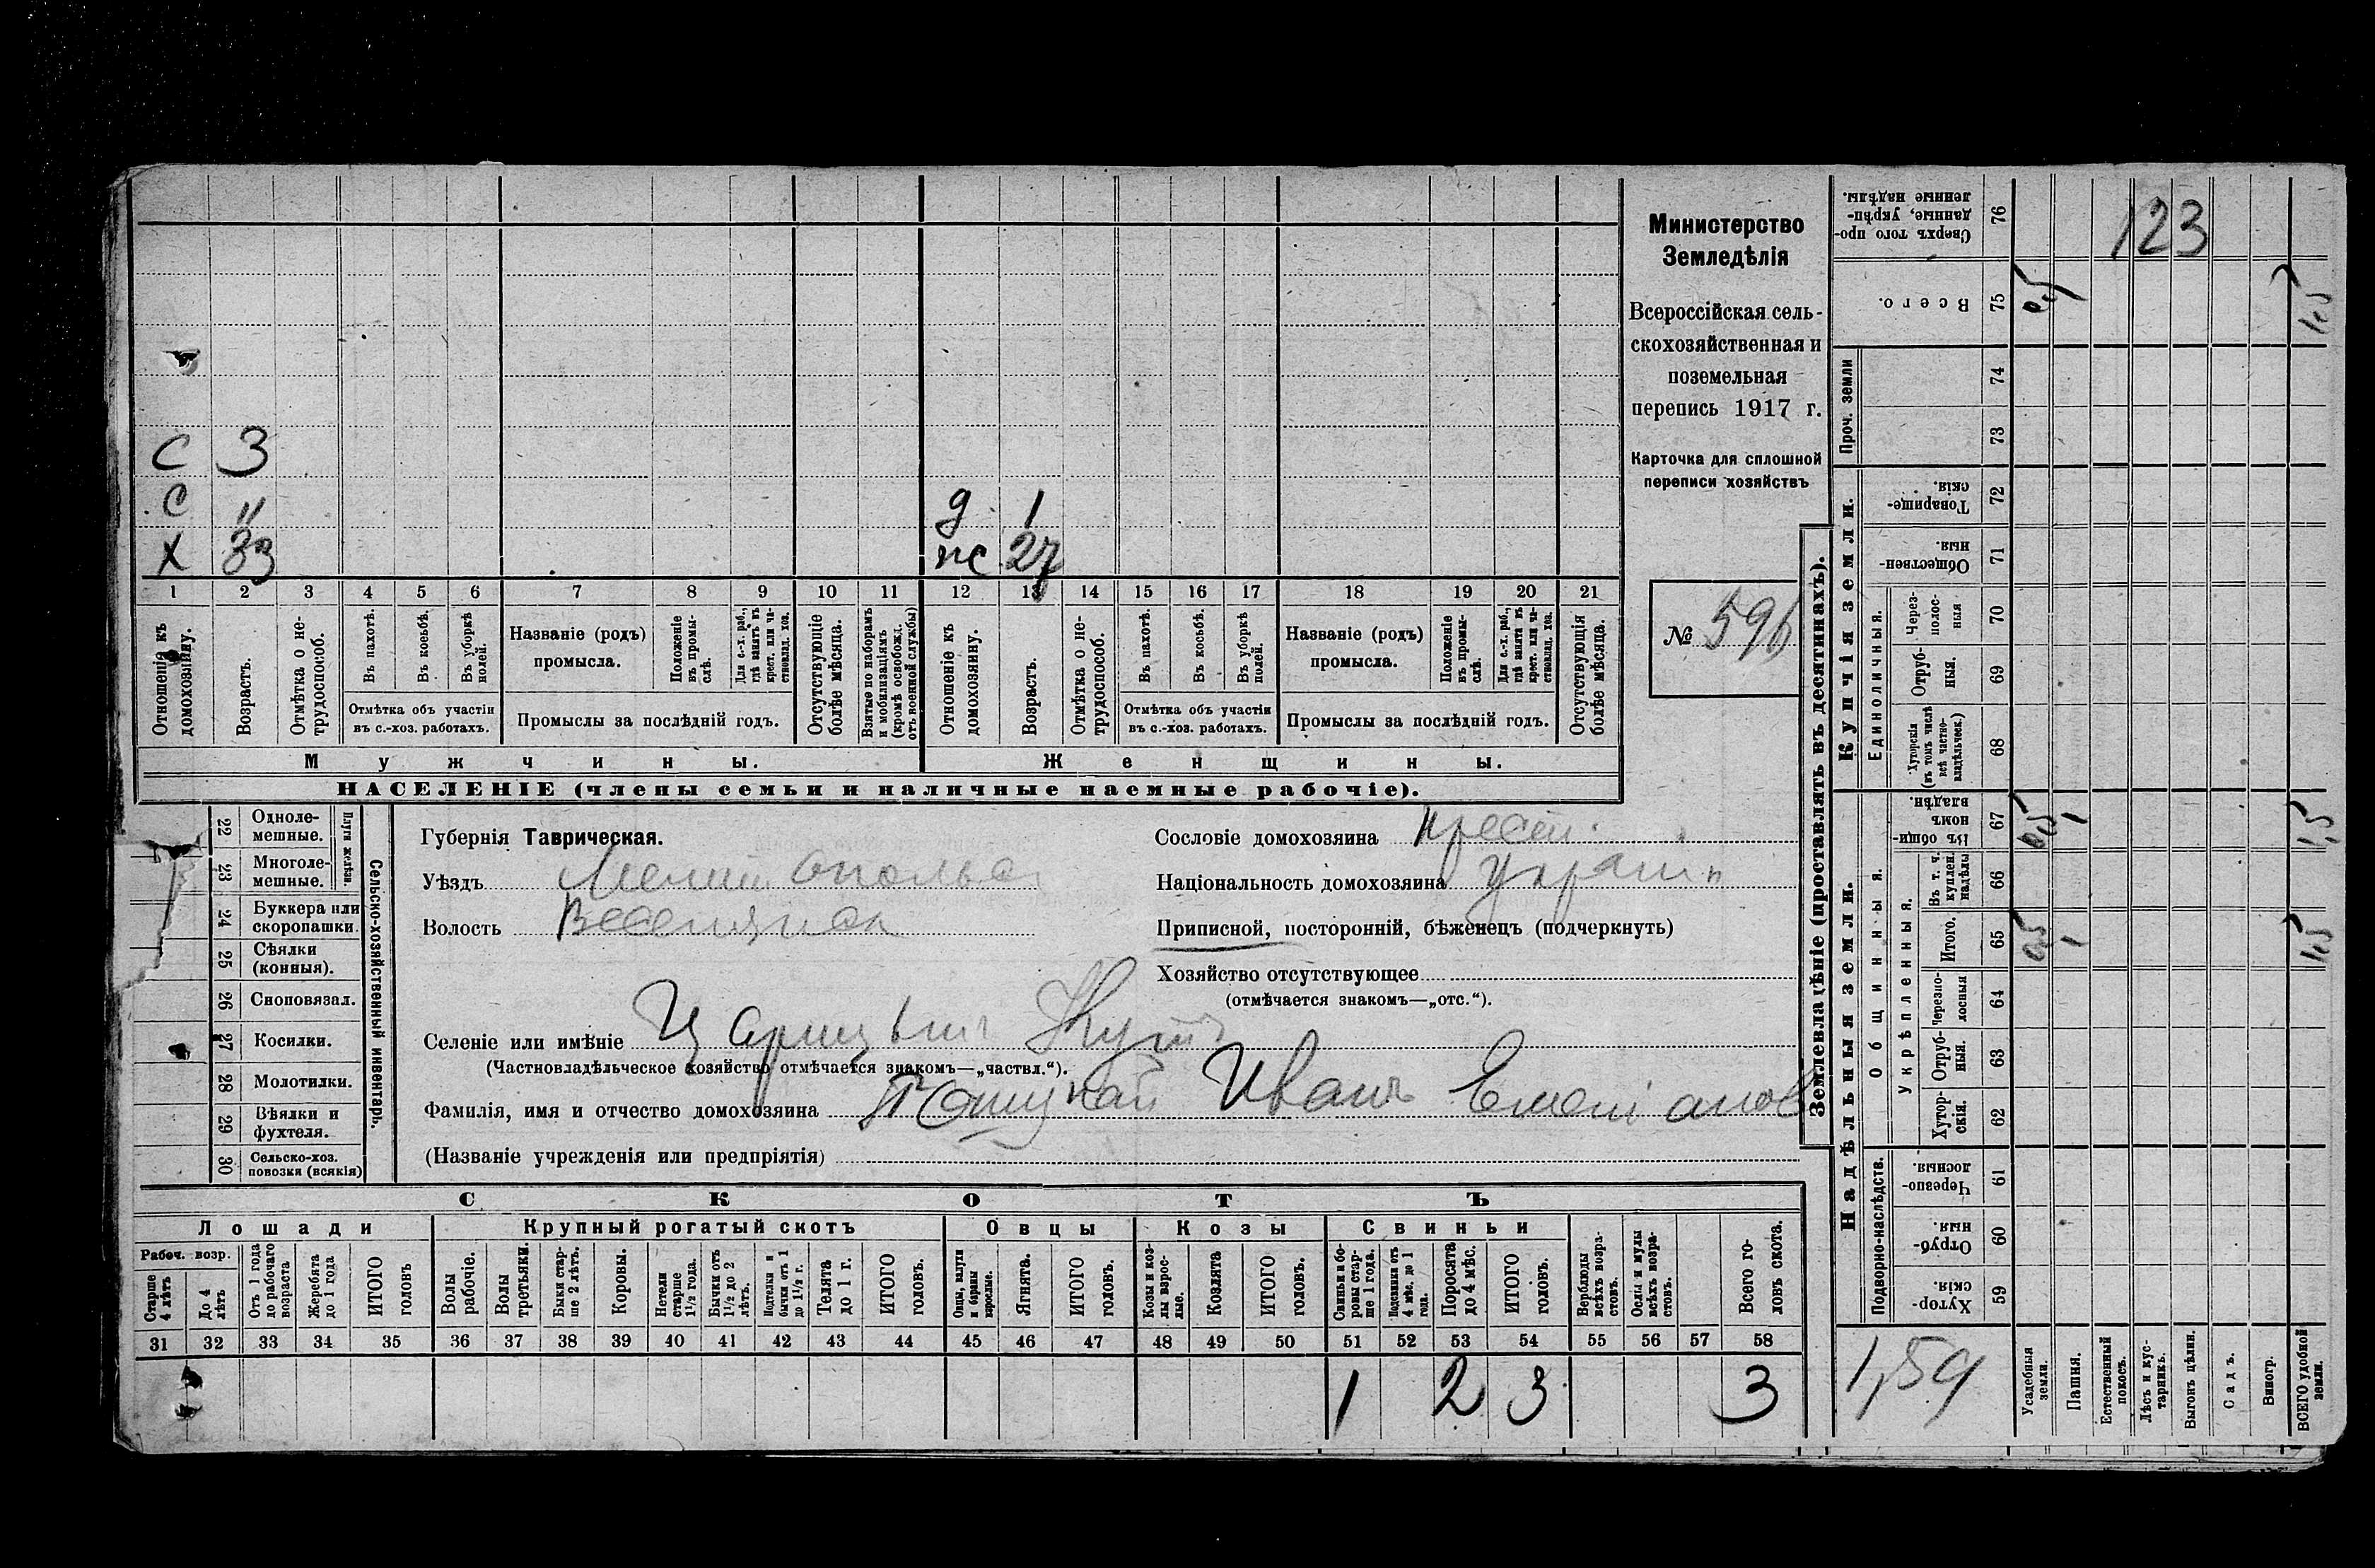 С 3
С "
Х 33
д 1
ж 27
1 2 3 4 5 6 7 8 9 10 11 12 13 14 15 16 17 18 19 20 21
Отношеніе къ домохозяину.
Возрастъ.
Отмѣтка о не-трудоспособ.
Въ пахотѣ.
Въ косьбѣ.
Въ уборкѣ полей.
Отмѣтка объ участіи
въ с.-хоз. работахъ.
Названіе (родъ)
промысла.
Положеніе въ промы-слѣ.
Для с.-х. раб., гдѣ занятъ въ крест. или ча-стновлад. хоз.
Промыслы за послѣдній годъ.
Отсутствующіе болѣе мѣсяца.
Взятые по наборамъ и мобилизаціямъ (кромѣ освобожд. отъ военной службы)
Отношеніе къ домохозяину.
Возрастъ.
Отмѣтка о не-трудоспособ.
Въ пахотѣ.
Въ косьбѣ.
Въ уборкѣ полей.
Отмѣтка объ участіи
въ с.-хоз. работахъ.
Названіе (родъ)
промысла.
Положеніе въ промы-слѣ.
Для с.-х. раб., гдѣ занята въ крест. или ча-стновлад. хоз.
Промыслы за послѣдній годъ.
Отсутствующія болѣе мѣсяца.
Мужчины.
Женщины.
НАСЕЛЕНІЕ (члены семьи и наличные наемные рабочіе).
Министерство
Земледѣлія
Всероссійская сель-
скохозяйственная и
поземельная
перепись 1917 г.
Карточка для сплошной
переписи хозяйствъ
№ 596
22 Одноле-мешные.
23 Многоле-мешные.
Плуги желѣзн.
24 Буккера или скоропашки.
25 Сѣялки (конныя).
26 Сноповязал.
27 Косилки.
28 Молотилки.
29 Вѣялки и фухтеля.
30 Сельско-хоз. повозки (всякія)
Сельско-хозяйственный инвентарь.
Губернія Таврическая.
Уѣздъ
Волость
Селеніе или имѣніе Царицынъ Кутъ
(Частновладѣльческое хозяйство отмѣчается знакомъ—„частвл.“).
Фамилія, имя и отчество домохозяина Иванъ
(Названіе учрежденія или предпріятія)
Сословіе домохозяина крест.
Національность домохозяина украин
Приписной, посторонній, бѣженецъ (подчеркнуть)
Хозяйство отсутствующее
(отмѣчается знакомъ—„отс.“).
СКОТЪ
Лошади
Крупный рогатый скотъ
Овцы
Козы
Свиньи
Рабоч. возр.
Старше 4 лѣтъ
До 4 лѣтъ
Отъ 1 года до рабочаго возраста
Жеребята до 1 года
ИТОГО головъ
Волы рабочіе.
Волы третьяки.
Быки стар-ше 2 лѣтъ.
Коровы.
Нетели старше 1½ года.
Бычки отъ 1½ до 2 лѣтъ.
Подтелки и бычки отъ 1 до 1½ г.
Телята до 1 г.
ИТОГО головъ.
Овцы, валухи и бараны взрослые.
Ягнята.
ИТОГО головъ.
Козы и коз-лы взрос-лые.
Козлята
ИТОГО головъ.
Свиньи и бо-ровы стар-ше 1 года.
Подсвинки отъ 4 мѣс. до 1 года.
Поросята до 4 мѣс.
ИТОГО головъ.
Верблюды всѣхъ возра-стовъ.
Ослы и мулы всѣхъ возра-стовъ.
Всего го-ловъ скота.
31 32 33 34 35 36 37 38 39 40 41 42 43 44 45 46 47 48 49 50 51 52 53 54 55 56 57 58
1 2 3 3
Землевладѣніе (проставлять въ десятинахъ).
123
Сверхъ того про-данные, укрѣп-ленные надѣлы. 76
Всего. 75 0,5 1 1,5
Проч. земли
74
73
Купчія земли.
Товарище-скія. 72
Обществен-ныя. 71
Единоличныя.
Через-полос-ныя 70
Отруб-ныя. 69
Хуторскія (въ томъ числѣ всѣ частно-владѣльческ.) 68
Надѣльныя земли.
Общинныя.
Въ общин-номъ владѣн. 67 0,5 1 1,5
Укрѣпленныя.
Въ т. ч. куплен. надѣлы 66
Итого. 65 0,5 1 1,5
Черезпо-лосныя 64
Отруб-ныя. 63
Хутор-скія. 62
Подворно-наслѣдств.
Черезпо-лосныя. 61
Отруб-ныя. 60
Хутор-скія. 59
1,59
Усадебныя земли.
Пашня.
Естественный покосъ.
Лѣсъ и кус-тарникъ.
Выгонъ цѣлин.
Садъ.
Виногр.
ВСЕГО удобной земли.